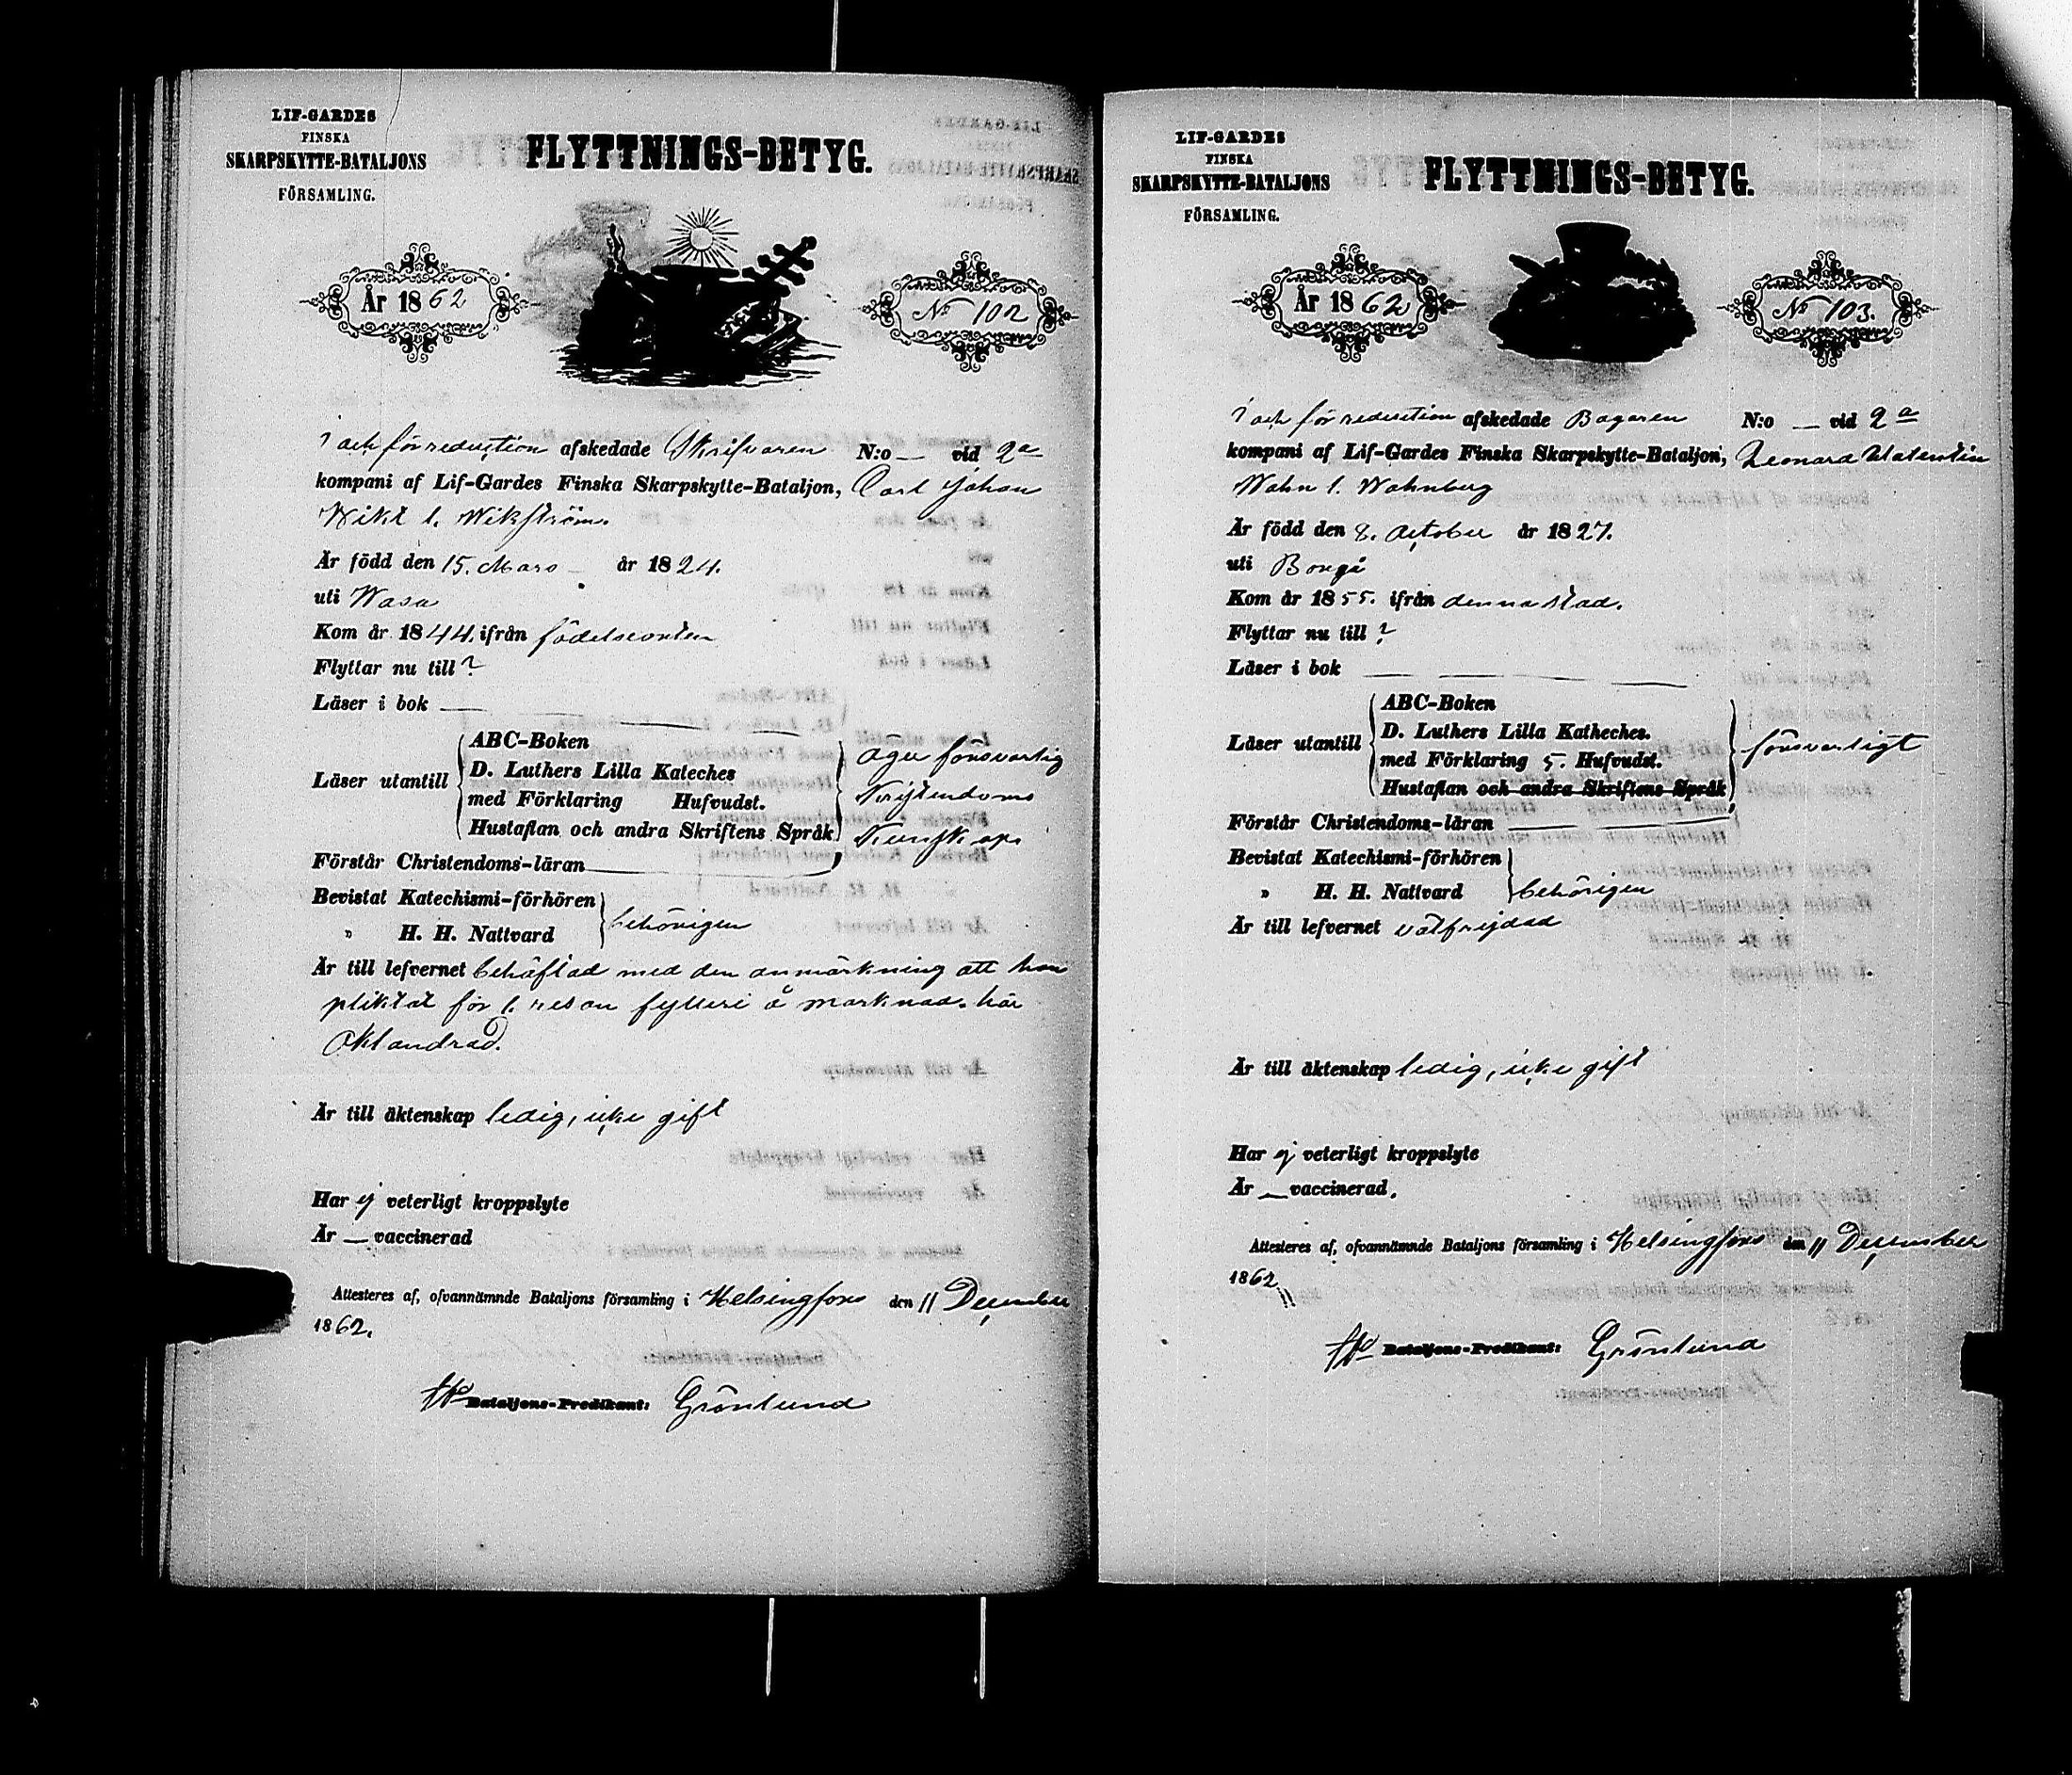 LIF-GARDES
FINSKA
SKARPSKYTTE-BATALJONS
FÖRSAMLING.
FLYTTNINGS-BETYG.
År 1862
No 102
i och för reduction afskedade Skrifvaren N:o — vid 2a
kompani af Lif-Gardes Finska Skarpskytte-Bataljon, Carl Johan
Wikt l. Wikström.
Är född den 15. Mars — år 1824.
uti Wasa
Kom år 1844. ifrån födelseorten
Flyttar nu till ?
Läser i bok —
Läser utantill
ABC-Boken
D. Luthers Lilla Kateches
med Förklaring Hufvudst.
Hustaflan och andra Skriftens Språk
äger försvarlig
Kristendoms
Kunskap
Förstår Christendoms-läran
Bevistat Katechismi-förhören
" H. H. Nattvard
behörigen
Är till lefvernet behäftad med den anmärkning att han
pliktat för 1. resan fylleri å marknad. här
Oklandrad.
Är till äktenskap ledig, icke gift
Har ej veterligt kroppslyte
Är — vaccinerad
Attesteres af, ofvannämnde Bataljons församling i Helsingfors den 11 December
1862.
Bataljons-Predikant: Grönlund
LIF-GARDES
FINSKA
SKARPSKYTTE-BATALJONS
FÖRSAMLING.
FLYTTNINGS-BETYG.
År 1862
No 103.
i och för reduction afskedade Bagaren N:o — vid 2a
kompani af Lif-Gardes Finska Skarpskytte-Bataljon, Leonard Valentin
Wahn l. Wahnberg
Är född den 8. October år 1827.
uti Borgå
Kom år 1855. ifrån denna stad.
Flyttar nu till ?
Läser i bok —
Läser utantill
ABC-Boken
D. Luthers Lilla Katheches.
med Förklaring 5. Hufvudst.
Hustaflan och andra Skriftens Språk
försvarligt
Förstår Christendoms-läran
Bevistat Katechismi-förhören
" H. H. Nattvard
behörigen
Är till lefvernet välfrejdad
Är till äktenskap ledig, icke gift
Har ej veterligt kroppslyte
Är — vaccinerad.
Attesteres af, ofvannämnde Bataljons församling i Helsingfors den 11 December
1862
Bataljons-Predikant: Grönlund